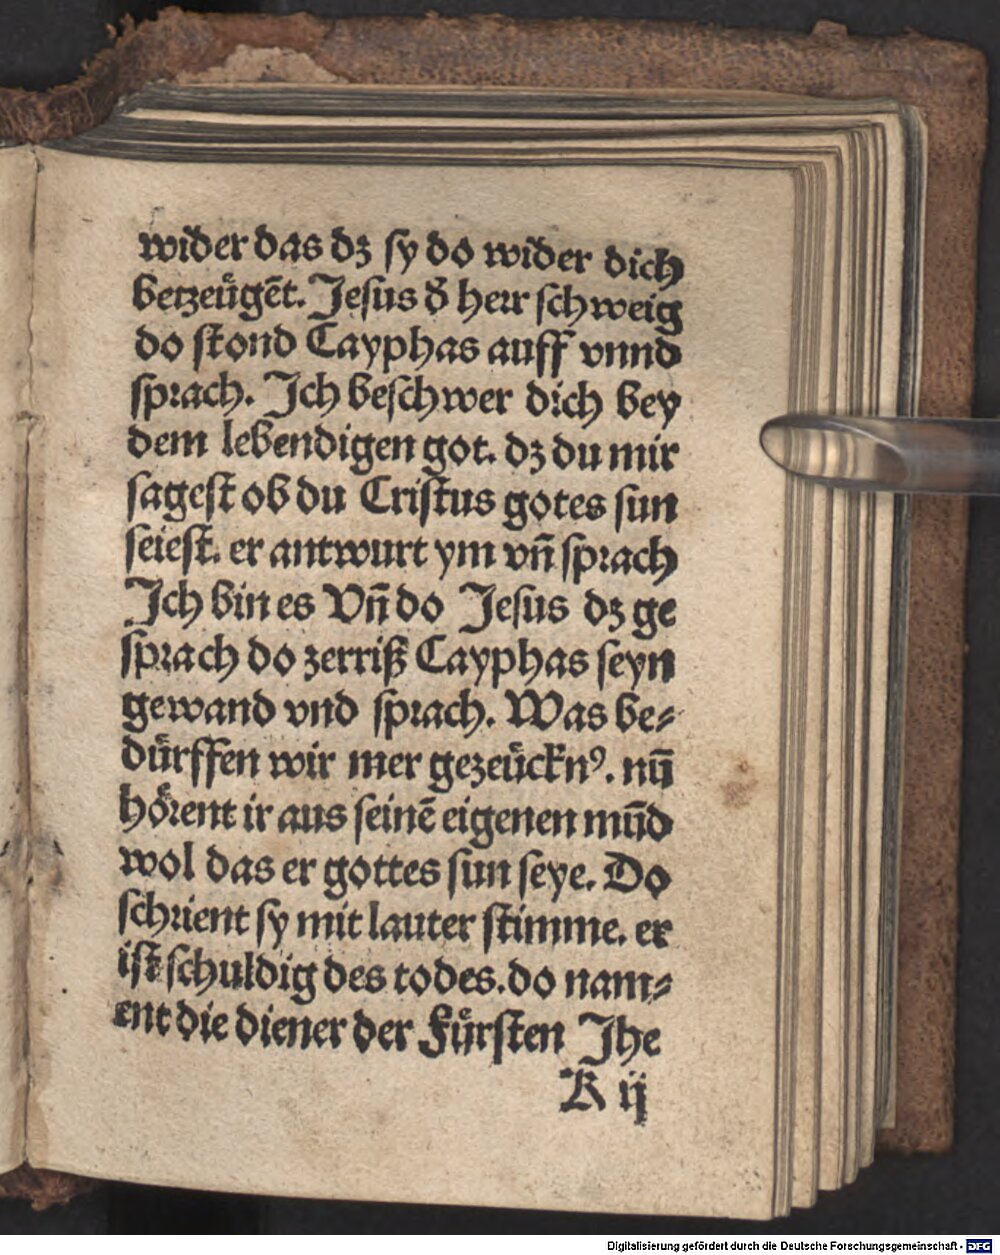 wider das dz sy do wider dich
betzeügēt. Jesus d̕ herr schweig
do stond Cayphas auff vnnd
sprach. Jch beschwer dich bey
dem lebendigen got. dz du mir
sagest ob du Cristus gotes sun
seiest. er antwurt ym vn̄ sprach
Jch bin es Vn̄ do Jesus dz ge
sprach do zerriß Cayphas seyn
gewand vnd sprach. Was be⸗
dürffen wir mer gezeückn⁹. nū
hörent ir aus seinē eigenen mūd
wol das er gottes sun seye. Do
schrient sy mit lauter stimme. er
ist schuldig des todes. do nam⸗
ent die diener der Fürsten Jhe
K ij
Digitalisierung gefördert durch die Deutsche Forschungsgemeinschaft - DFG